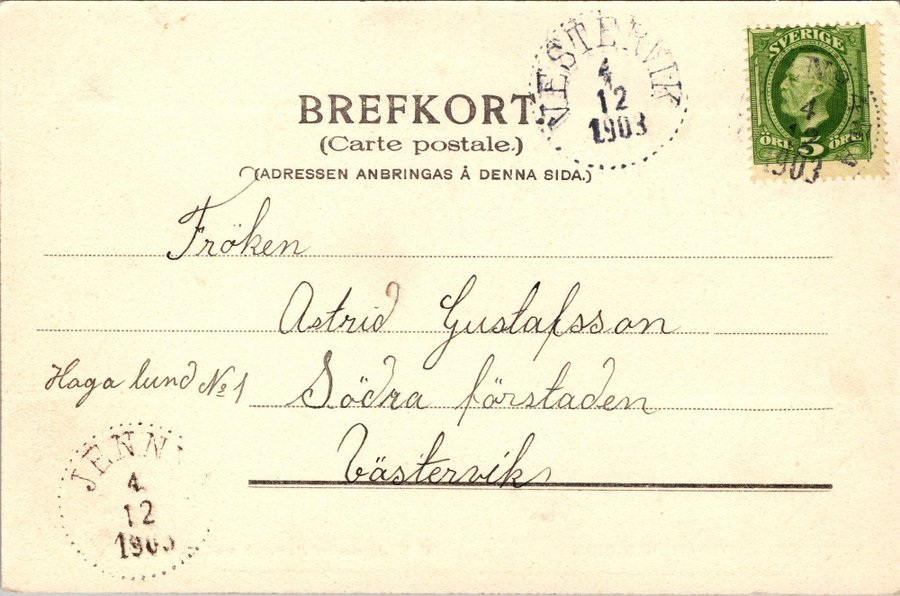 BREFKORT.
(Carte postale.)
(ADRESSEN ANBRINGAS Å DENNA SIDA.)
VESTERVIK
4
12
1903
SVERIGE
ÖRE 5 ÖRE
4
12
1903
Fröken
Astrid Gustafsson
Haga lund No 1
Södra förstaden
Västervik
JENNY
4
12
1903